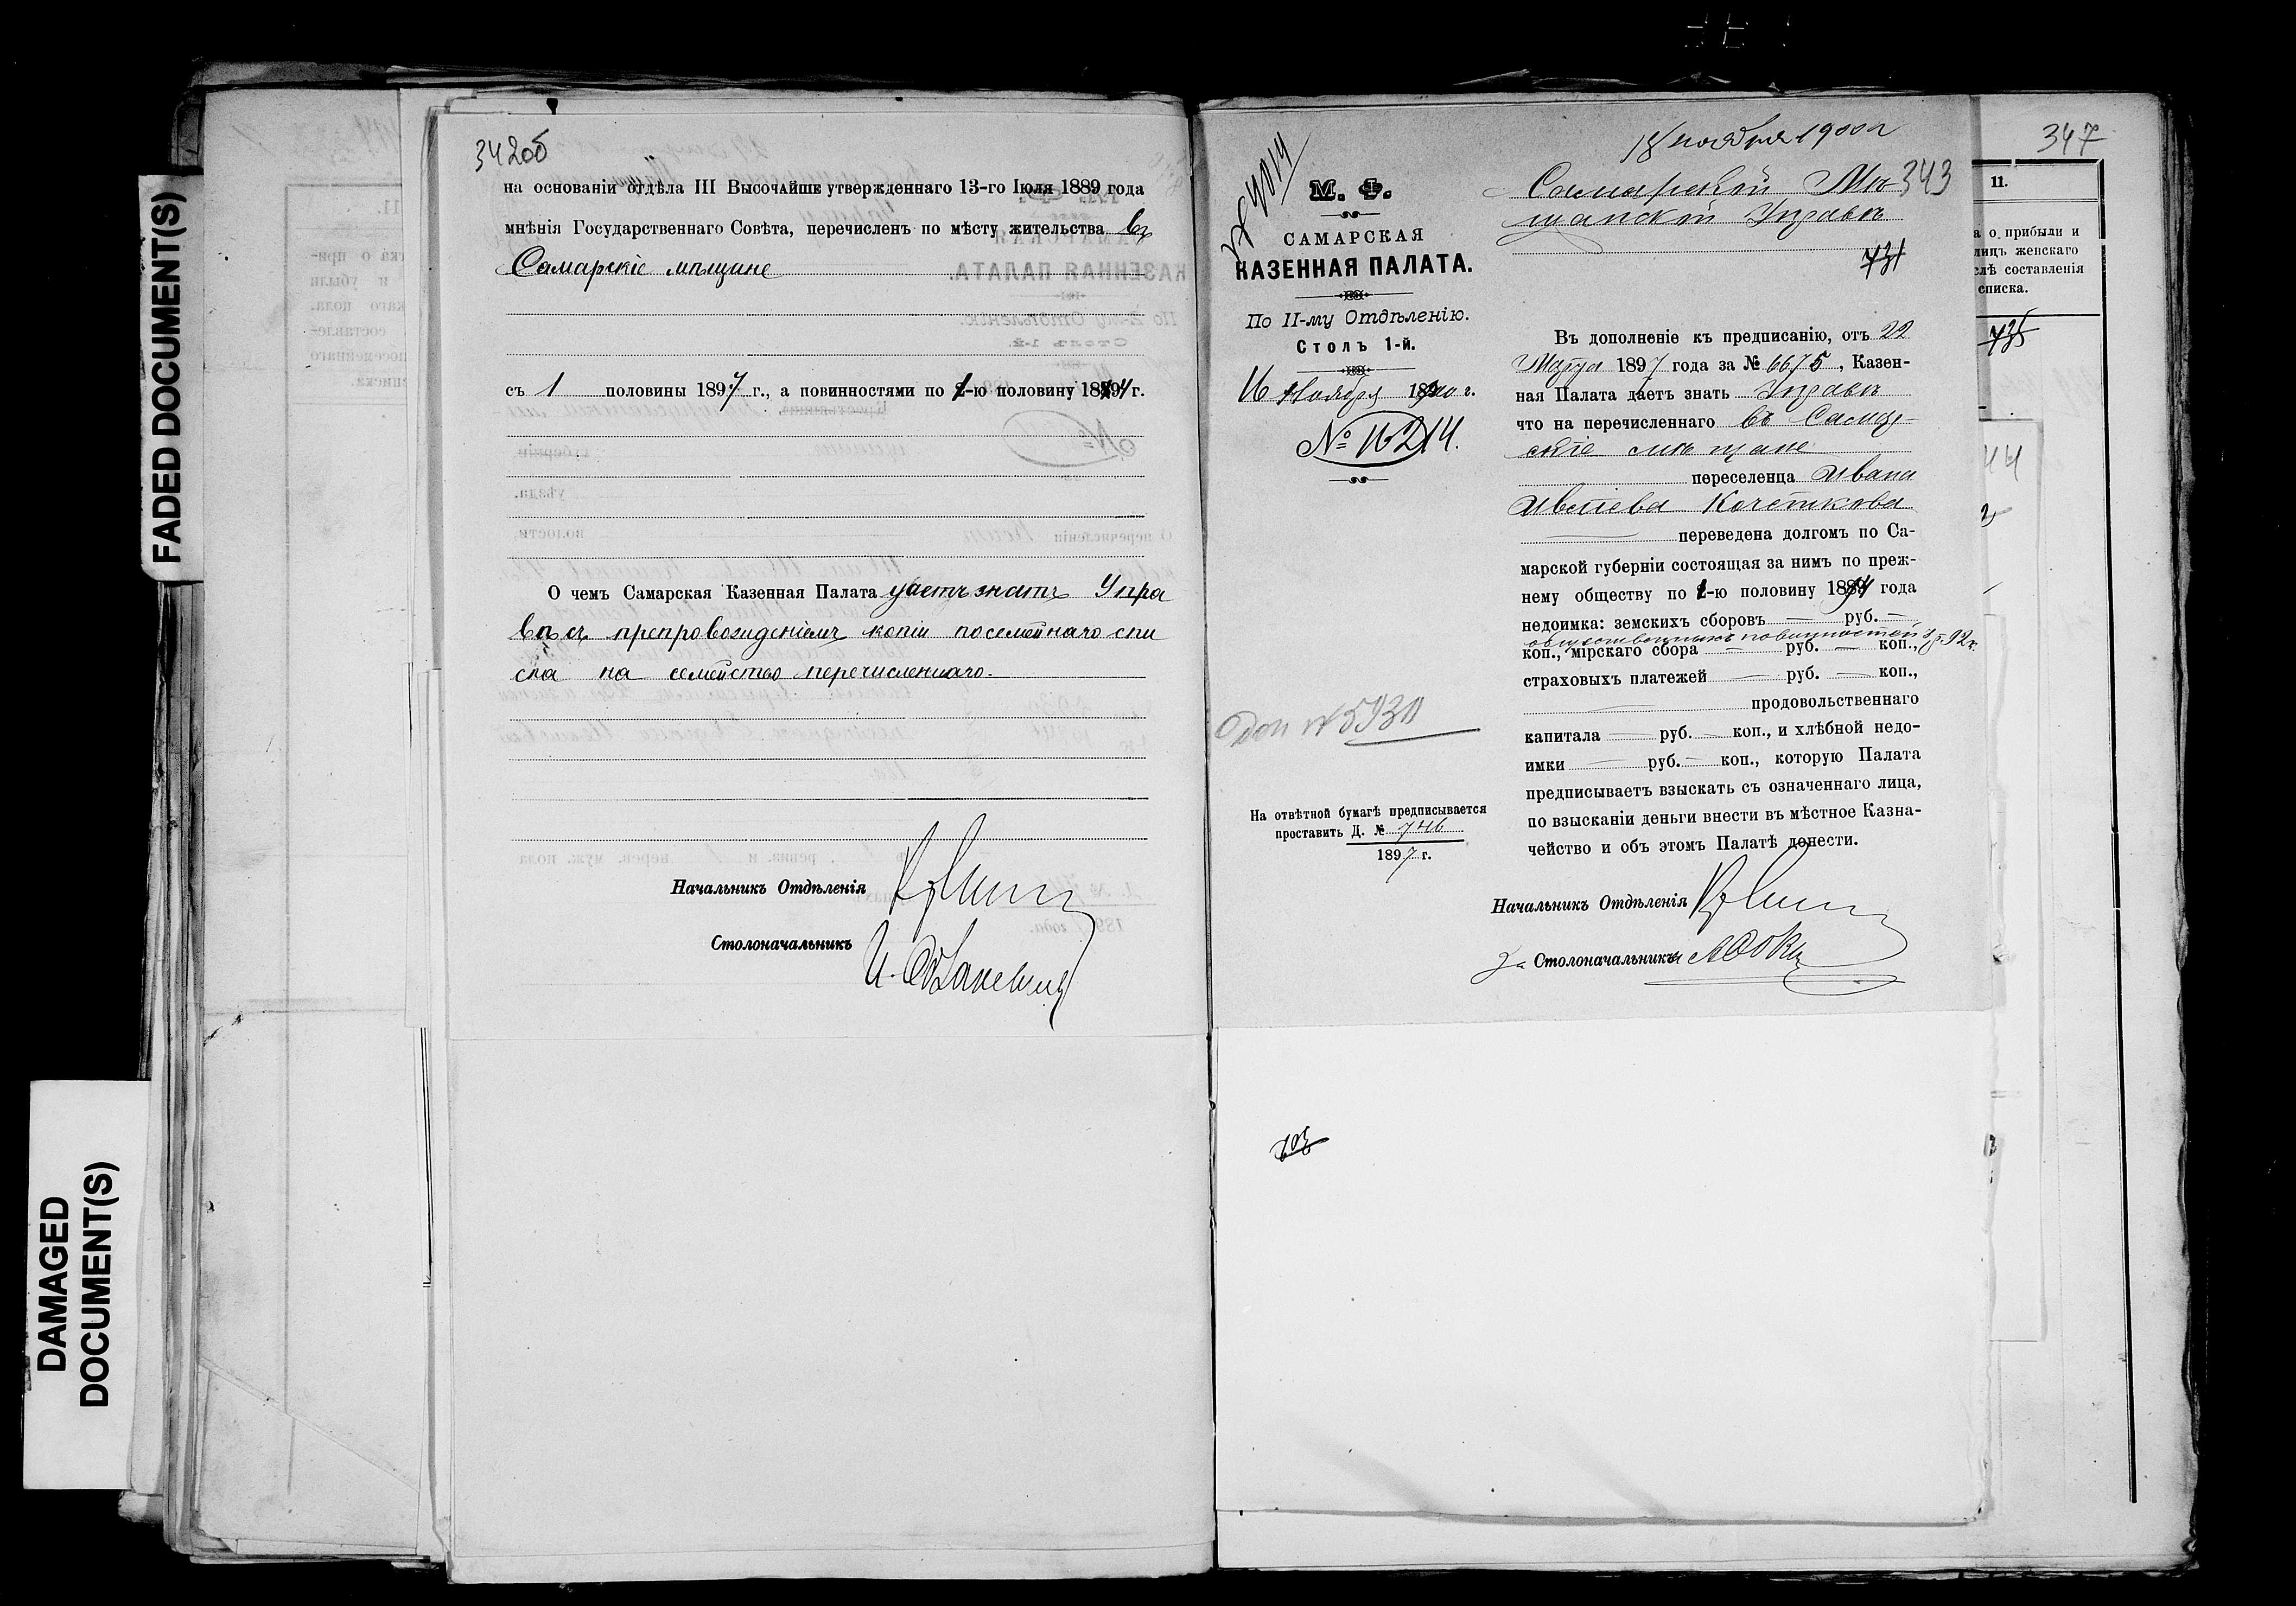 FADED DOCUMENT(S)
DAMAGED
DOCUMENT(S)
342об
на основаніи отдѣла III Высочайше утвержденнаго 13-го Іюля 1889 года
мнѣнія Государственнаго Совѣта, перечисленъ по мѣсту жительства въ
Самарскіе мѣщане
съ 1 половины 1897 г., а повинностями по 1-ю половину 1894 г.
О чемъ Самарская Казенная Палата даетъ знать Упра
вѣ съ препровожденіемъ копіи посемейнаго спи
ска на семейство перечисленнаго.
Начальникъ Отдѣленія
Столоначальникъ
№ 4014
М. Ф.
САМАРСКАЯ
КАЗЕННАЯ ПАЛАТА.
По II-му Отдѣленію.
Столъ 1-й.
16 Ноября 1900 г.
№ 16214.
На отвѣтной бумагѣ предписывается
проставить Д. № 746
1897 г.
18 ноября 1900 г
343
Самарской Мѣ
щанской Управѣ
731
Въ дополненіе къ предписанію, отъ 22
Марта 1897 года за № 6675, Казен-
ная Палата даетъ знать Управѣ
что на перечисленнаго въ Самар
скіе мѣщане
переселенца Ивана
Кочеткова
переведена долгомъ по Са-
марской губерніи состоящая за нимъ по преж-
нему обществу по 1-ю половину 1894 года
недоимка: земскихъ сборовъ — руб. —
общественныхъ повинностей 3 р. 92 к.
коп., мірскаго сбора — руб. — коп.,
страховыхъ платежей — руб. — коп.,
продовольственнаго
капитала — руб. — коп., и хлѣбной недо-
имки — руб. — коп., которую Палата
предписываетъ взыскать съ означеннаго лица,
по взысканіи деньги внести въ мѣстное Казна-
чейство и объ этомъ Палатѣ донести.
Начальникъ Отдѣленія
За Столоначальника
347
11.
а о прибыли и
лицъ женскаго
слѣ составленія
списка.
735
44